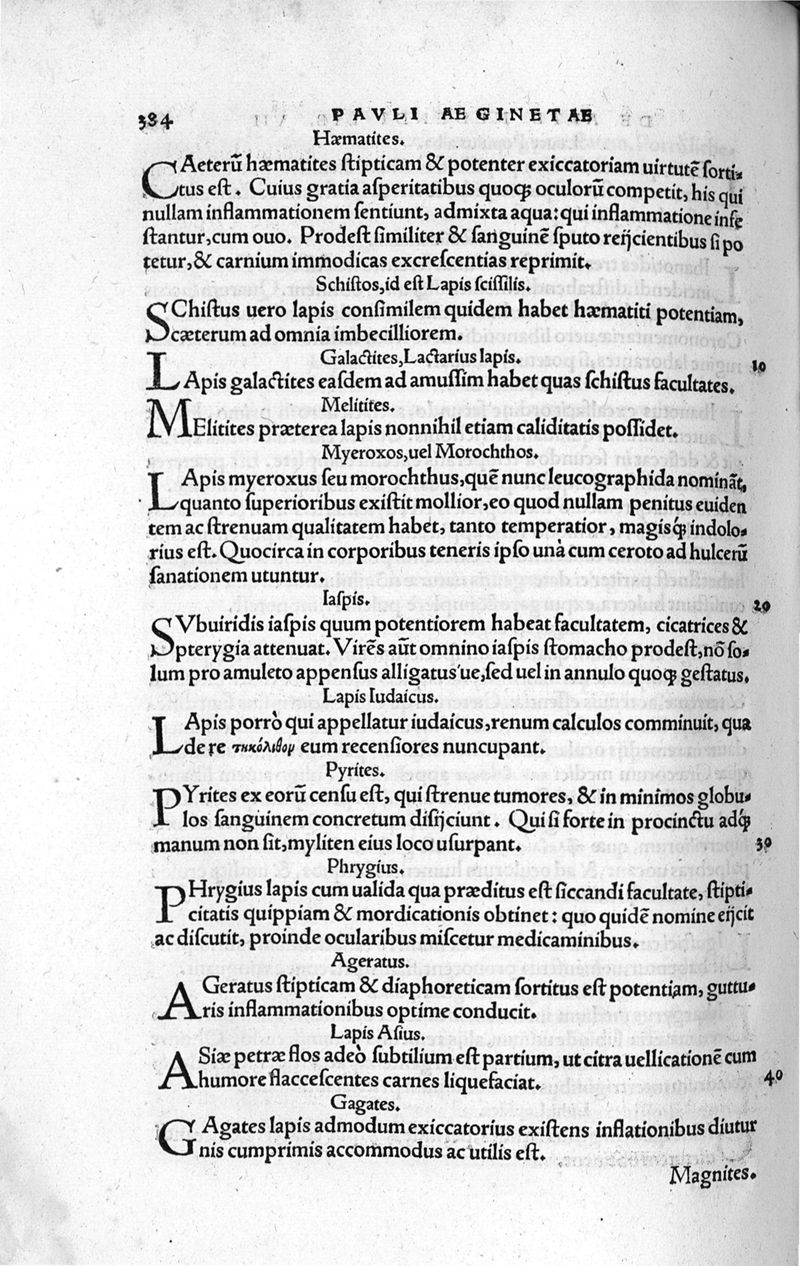 384 PAVLI AEGINETAE
Hæmatites.
CAeterū hæmatites ſtipticam & potenter exiccatoriam uirtutē ſorti-
tus eſt. Cuius gratia aſperitatibus quoqꝫ oculorū competit, his qui
nullam inflammationem ſentiunt, admixta aqua: qui inflammatione infe
ſtantur, cum ouo. Prodeſt ſimiliter & ſanguinē ſputo reijcientibus ſi po
tetur, & carnium immodicas excreſcentias reprimit.
Schiſtos, id eſt Lapis ſciſſilis.
SChiſtus uero lapis conſimilem quidem habet hæmatiti potentiam,
cæterum ad omnia imbecilliorem.
Galactites, Lactarius lapis. 10
LApis galactites eaſdem ad amuſſim habet quas ſchiſtus facultates.
Melitites.
MElitites præterea lapis nonnihil etiam caliditatis poſſidet.
Myeroxos, uel Morochthos.
LApis myeroxus ſeu morochthus, quē nunc leucographida nominãt,
quanto ſuperioribus exiſtit mollior, eo quod nullam penitus euiden
tem ac ſtrenuam qualitatem habet, tanto temperatior, magisqꝫ indolo-
rius eſt. Quocirca in corporibus teneris ipſo unà cum ceroto ad hulcerū
ſanationem utuntur.
Iaſpis. 20
SVbuiridis iaſpis quum potentiorem habeat facultatem, cicatrices &
pterygia attenuat. Virēs aūt omnino iaſpis ſtomacho prodeſt, nō ſo-
lum pro amuleto appenſus alligatus'ue, ſed uel in annulo quoqꝫ geſtatus.
Lapis Iudaicus.
LApis porrò qui appellatur iudaicus, renum calculos comminuit, qua
de re τηκόλιθον eum recenſiores nuncupant.
Pyrites.
PYrites ex eorū cenſu eſt, qui ſtrenue tumores, & in minimos globu-
los ſanguinem concretum diſijciunt. Qui ſi forte in procinctu adqꝫ
manum non ſit, myliten eius loco uſurpant. 30
Phrygius.
PHrygius lapis cum ualida qua præditus eſt ſiccandi facultate, ſtipti-
citatis quippiam & mordicationis obtinet: quo quidē nomine eijcit
ac diſcutit, proinde ocularibus miſcetur medicaminibus.
Ageratus.
AGeratus ſtipticam & diaphoreticam ſortitus eſt potentiam, guttu-
ris inflammationibus optime conducit.
Lapis Aſius.
ASiæ petræ flos adeò ſubtilium eſt partium, ut citra uellicationē cum
humore flacceſcentes carnes liquefaciat. 40
Gagates.
GAgates lapis admodum exiccatorius exiſtens inflationibus diutur
nis cumprimis accommodus ac utilis eſt.
Magnites.